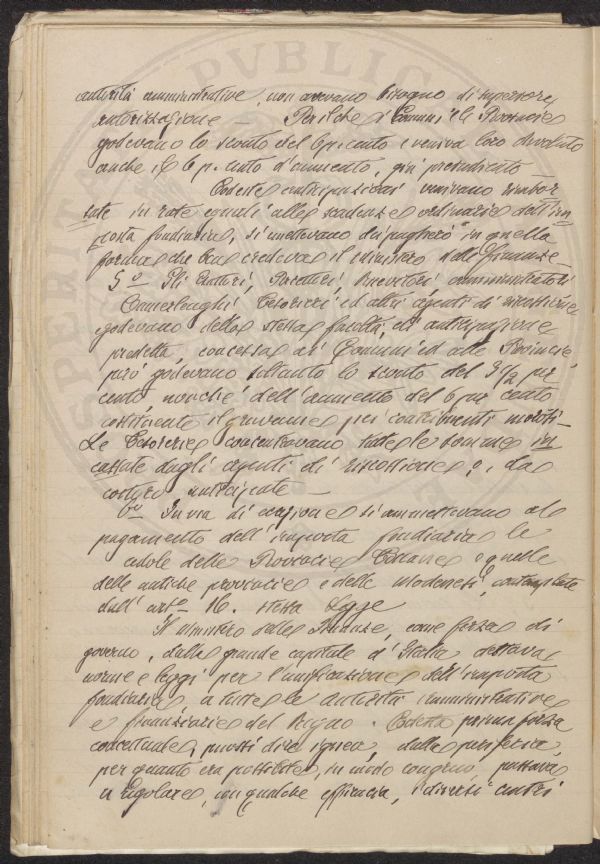 autorità amministrative, non avevano bisogno di superiore
autorizzazione — Perilche i Comuni e le Provincie
godevano lo sconto del 6 per cento e veniva loro devoluto
anche il 6 p. cento d'aumento, già preindicato —
Codeste anticipazioni venivano rimbor
sate in rate eguali alle scadenze ordinarie dell'im
posta fondiaria, si emettevano dei pagherò in quella
forma che ben credeva il ministero delle finanze —
5º Gli Esattori, Ricevitori, amministratori
Camerlenghi, Tesorieri, ed altri agenti di riscossione
godevano della stessa facoltà di anticipazione
predetta, concessa ai Comuni ed alle Provincie,
però godevano soltanto lo sconto del 3 1/2 per
cento nonché dell'aumento del 6 per cento
costituente il gravame pei contribuenti morosi —
Le Tesorerie concentravano tutte le somme in
cassate dagli agenti di riscossione, o, da
costoro anticipate —
6º In via di eccezione si ammettevano al
pagamento dell'imposta fondiaria le
cedole delle Provincie Toscane e quelle
delle antiche provincie e delle Modenesi, contemplate
dall'artº 16. stessa Legge
Il ministero delle Finanze, come forza di
governo, dalla grande capitale d'Italia dettava
norme e leggi per l'unificazione dell'imposta
fondiaria a tutte le autorità amministrative
e finanziarie del Regno. Codesta prima forza
concettuale, puossi dire ignea, dalla periferia,
per quanto era possibile, in modo congruo passava
a regolare, con qualche efficacia, i diversi centri